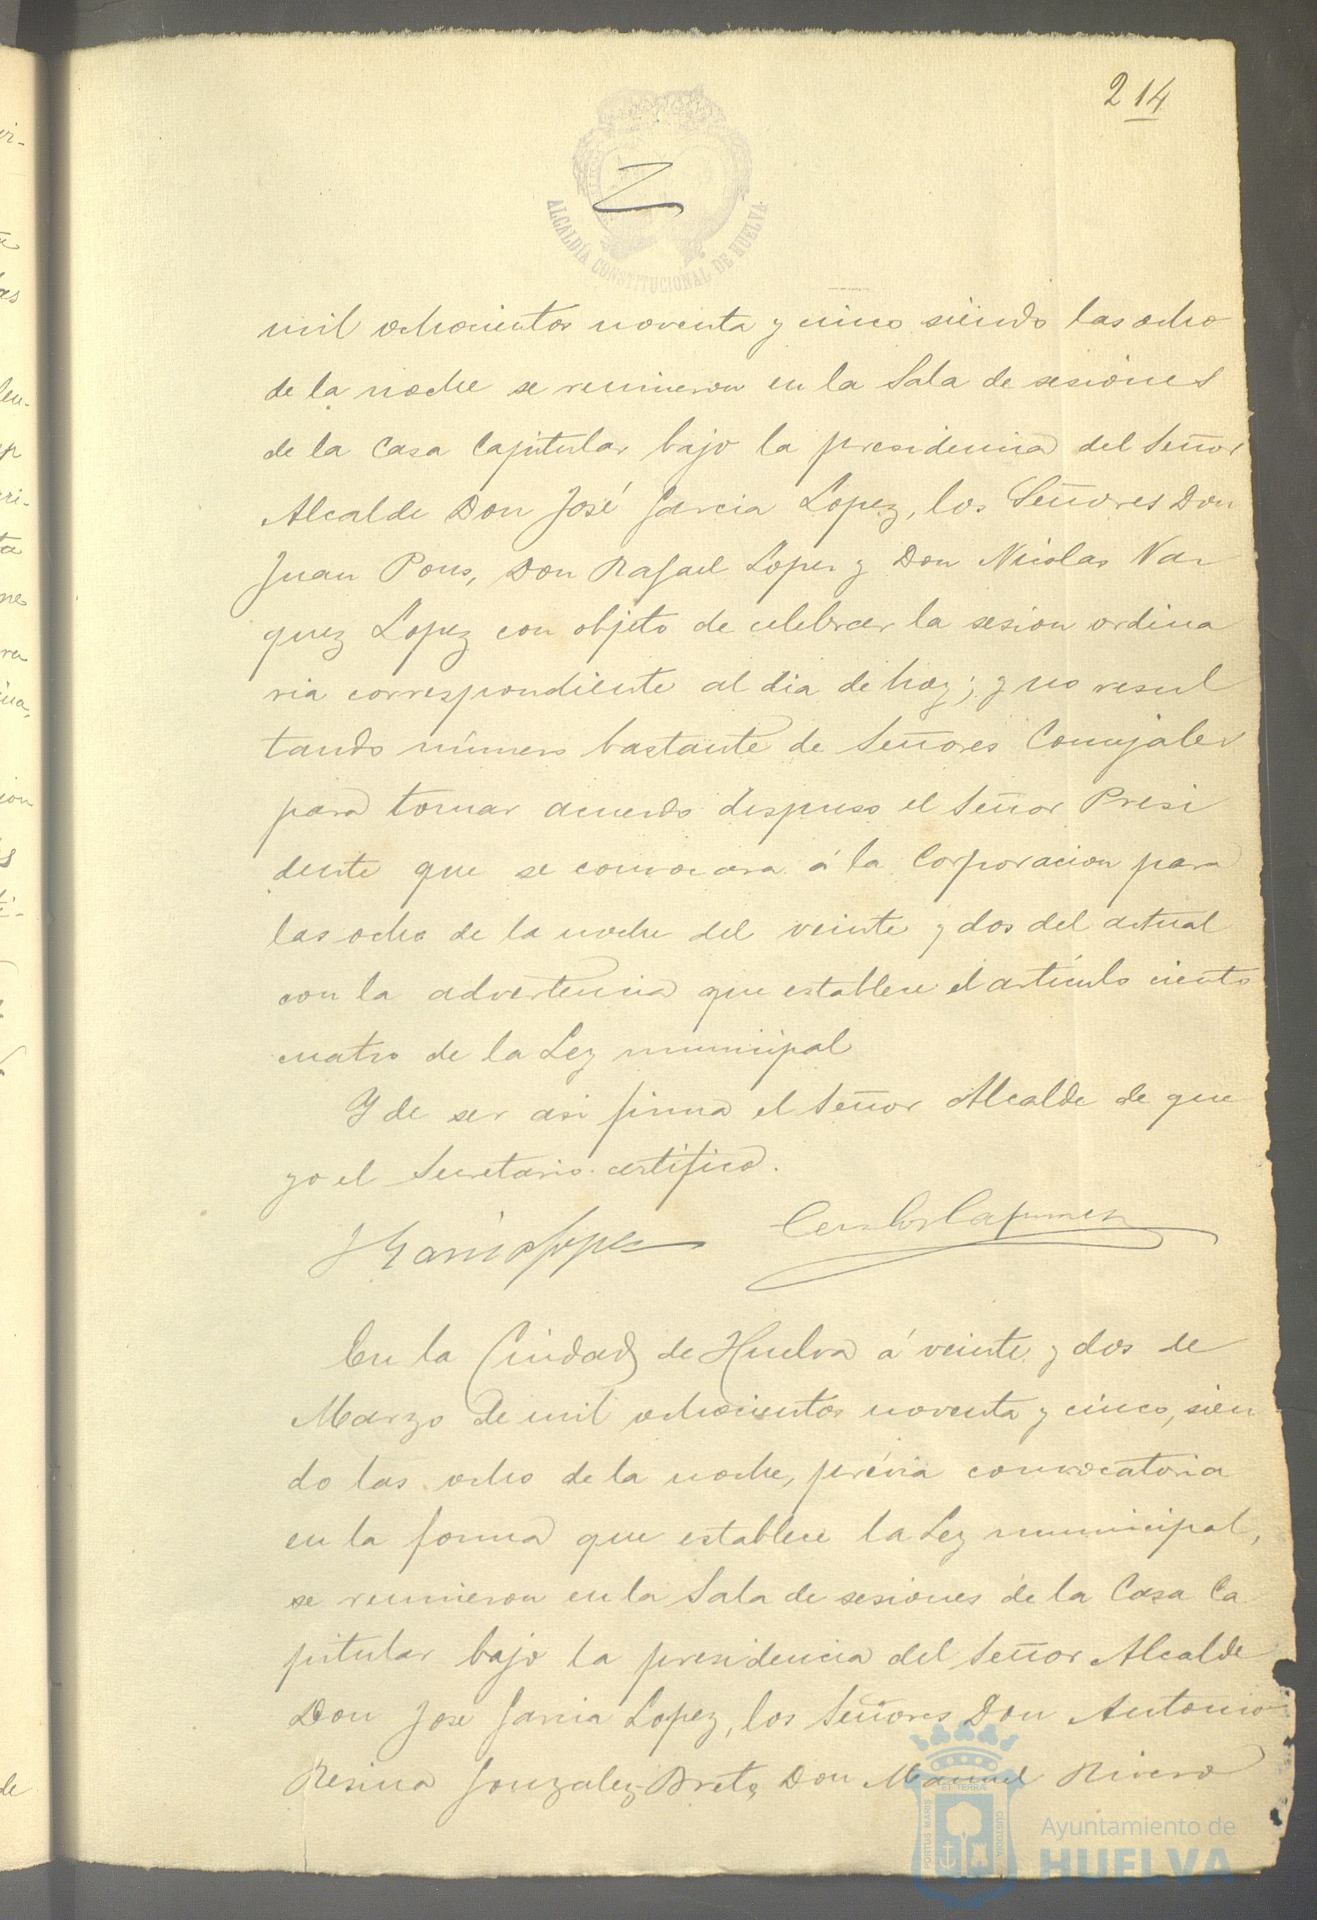 214
ALCALDÍA CONSTITUCIONAL DE HUELVA
mil ochocientos noventa y cinco siendo las ocho
de la noche se reunieron en la Sala de sesiones
de la Casa Capitular bajo la presidencia del Señor
Alcalde Don José Garcia Lopez, los Señores Don
Juan Pons, Don Rafael Lopez y Don Nicolas Vaz
quez Lopez con objeto de celebrar la sesion ordina
ria correspondiente al dia de hoy; y no resul
tando número bastante de Señores Concejales
para tomar acuerdo dispuso el Señor Presi
dente que se convocara á la Corporacion para
las ocho de la noche del veinte y dos del actual
con la advertencia que establece el artículo ciento
cuatro de la Ley municipal
Y de ser asi firma el Señor Alcalde de que
yo el Secretario certifico.
J Garcia Lopez
En la Ciudad de Huelva á veinte y dos de
Marzo de mil ochocientos noventa y cinco, sien
do las ocho de la noche, prévia convocatoria
en la forma que establece la Ley municipal,
se reunieron en la Sala de sesiones de la Casa Ca
pitular bajo la presidencia del Señor Alcalde
Don Jose Garcia Lopez, los Señores Don Antonio
Resina Gonzalez, Don Manuel Rivero
PORTUS MARIS ET TERRÆ CUSTODIA
Ayuntamiento de
HUELVA